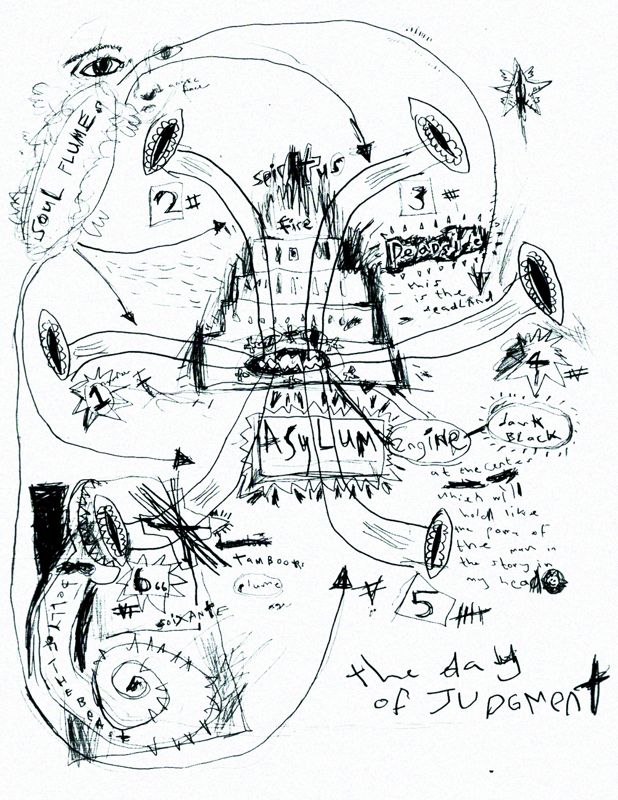 SOUL FLUME
2 #
3 #
spiritus
fire
this
is the
deadLAND
1
4 #
ASYLUM
engine
dark
BLACK
at the center
which will
hold like
the
of
the man in
the story in
my head
666
#
TAMBOOR
plume
SOIXANTE
5
BELLY OF THE BEAST
the day
of JUDGMENT